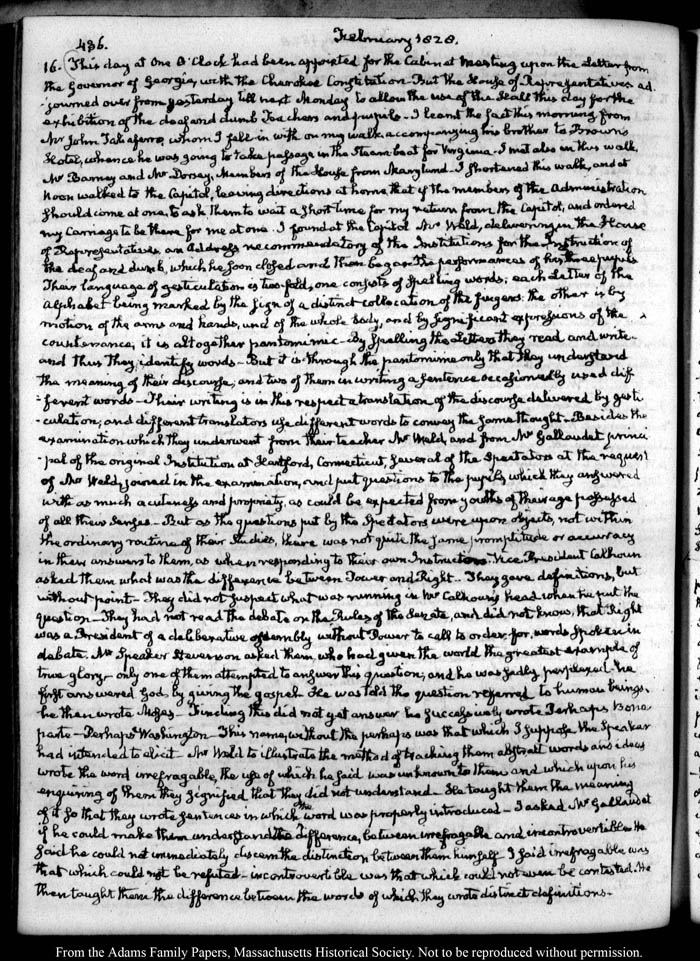 436.
February 1828.
16. This day at One O'Clock had been appointed for the Cabinet Meeting upon the Letter from
the Governor of Georgia, with the Cherokee Constitution. But the House of Representatives ad-
journed over from yesterday till next Monday to allow the use of the Hall this day for the
exhibition of the deaf and dumb Teachers and pupils. I learnt the fact this morning from
Mr John Taliaferro, whom I fell in with on my walk accompanying his brother to Brown's
Hotel, whence he was going to take passage in the Steam boat for Virginia. I met also in this walk,
Mr Barney and Mr Dorsey, Members of the House from Maryland. I shortened this walk, and at
Noon walked to the Capitol, leaving directions at home that if the members of the Administration
should come at one, to ask them to wait a short time for my return from the Capitol, and ordered
my Carriage to be there for me at one. I found at the Capitol Mr Weld, delivering in the House
of Representatives an address recommendatory of the Institutions for the Instruction of
the deaf and dumb, which he soon closed and then began the performances of his three pupils
Their language of gesticulation is two-fold, one consists of Spelling words; each Letter of the
alphabet being marked by the sign of a distinct collocation of the fingers: the other is by
motion of the arms and hands, and of the whole body, and by significant expressions of the
countenance, it is altogether pantomimic - By Spelling the Letters they read and write
and thus they identify words - But it is through the pantomime only that they understand
the meaning of their discourse; and two of them in writing a sentence occasionally used dif-
-ferent words - Their writing is in this respect a translation of the discourse delivered by gesti-
-culation; and different translators use different words to convey the same thought. Besides the
examination which they underwent from their teacher Mr Weld, and from Mr Gallaudet princi-
-pal of the original Institution at Hartford, Connecticut, several of the Spectators at the request
of Mr Weld, joined in the examination, and put questions to the pupils which they answered
with as much acuteness and propriety, as could be expected from youths of their age possessed
of all their senses. But as the questions put by the Spectators were upon objects, not within
the ordinary routine of their Studies, there was not quite the same promptitude or accuracy
in their answers to them, as when responding to their own Instructors. Vice-President Calhoun
asked them what was the difference between Power and Right. They gave definitions, but
without point - They did not suspect what was running in Mr Calhoun's head when he put the
question - They had not read the debate on the Rules of the Senate, and did not know, that Right
was a President of a deliberative assembly without Power to call to order, for words Spoken in
debate. Mr Speaker Stevenson asked them, who had given the world the greatest example of
true glory - only one of them attempted to answer this question; and he was sadly perplexed. he
first answered God, by giving the gospel. He was told the question referred to human beings.
he then wrote Moses - Finding this did not yet answer he successively wrote Perhaps Bona-
parte - Perhaps Washington - This name, without the perhaps was that which I suppose the Speaker
had intended to elicit - Mr Weld to illustrate the method of teaching them abstract words and ideas
wrote the word irrefragable, the use of which he said was unknown to them and which upon his
enquiring of them they signified that they did not understand - He taught them the meaning
of it so that they wrote sentences in which the word was properly introduced - I asked Mr Gallaudet
if he could make them understand the difference, between irrefragable and incontrovertible. He
said he could not immediately discern the distinction between them himself. I said irrefragable was
that which could not be refuted - incontrovertible was that which could not even be contested. He
then taught them the difference between the words of which they wrote distinct definitions.
From the Adams Family Papers, Massachusetts Historical Society. Not to be reproduced without permission.